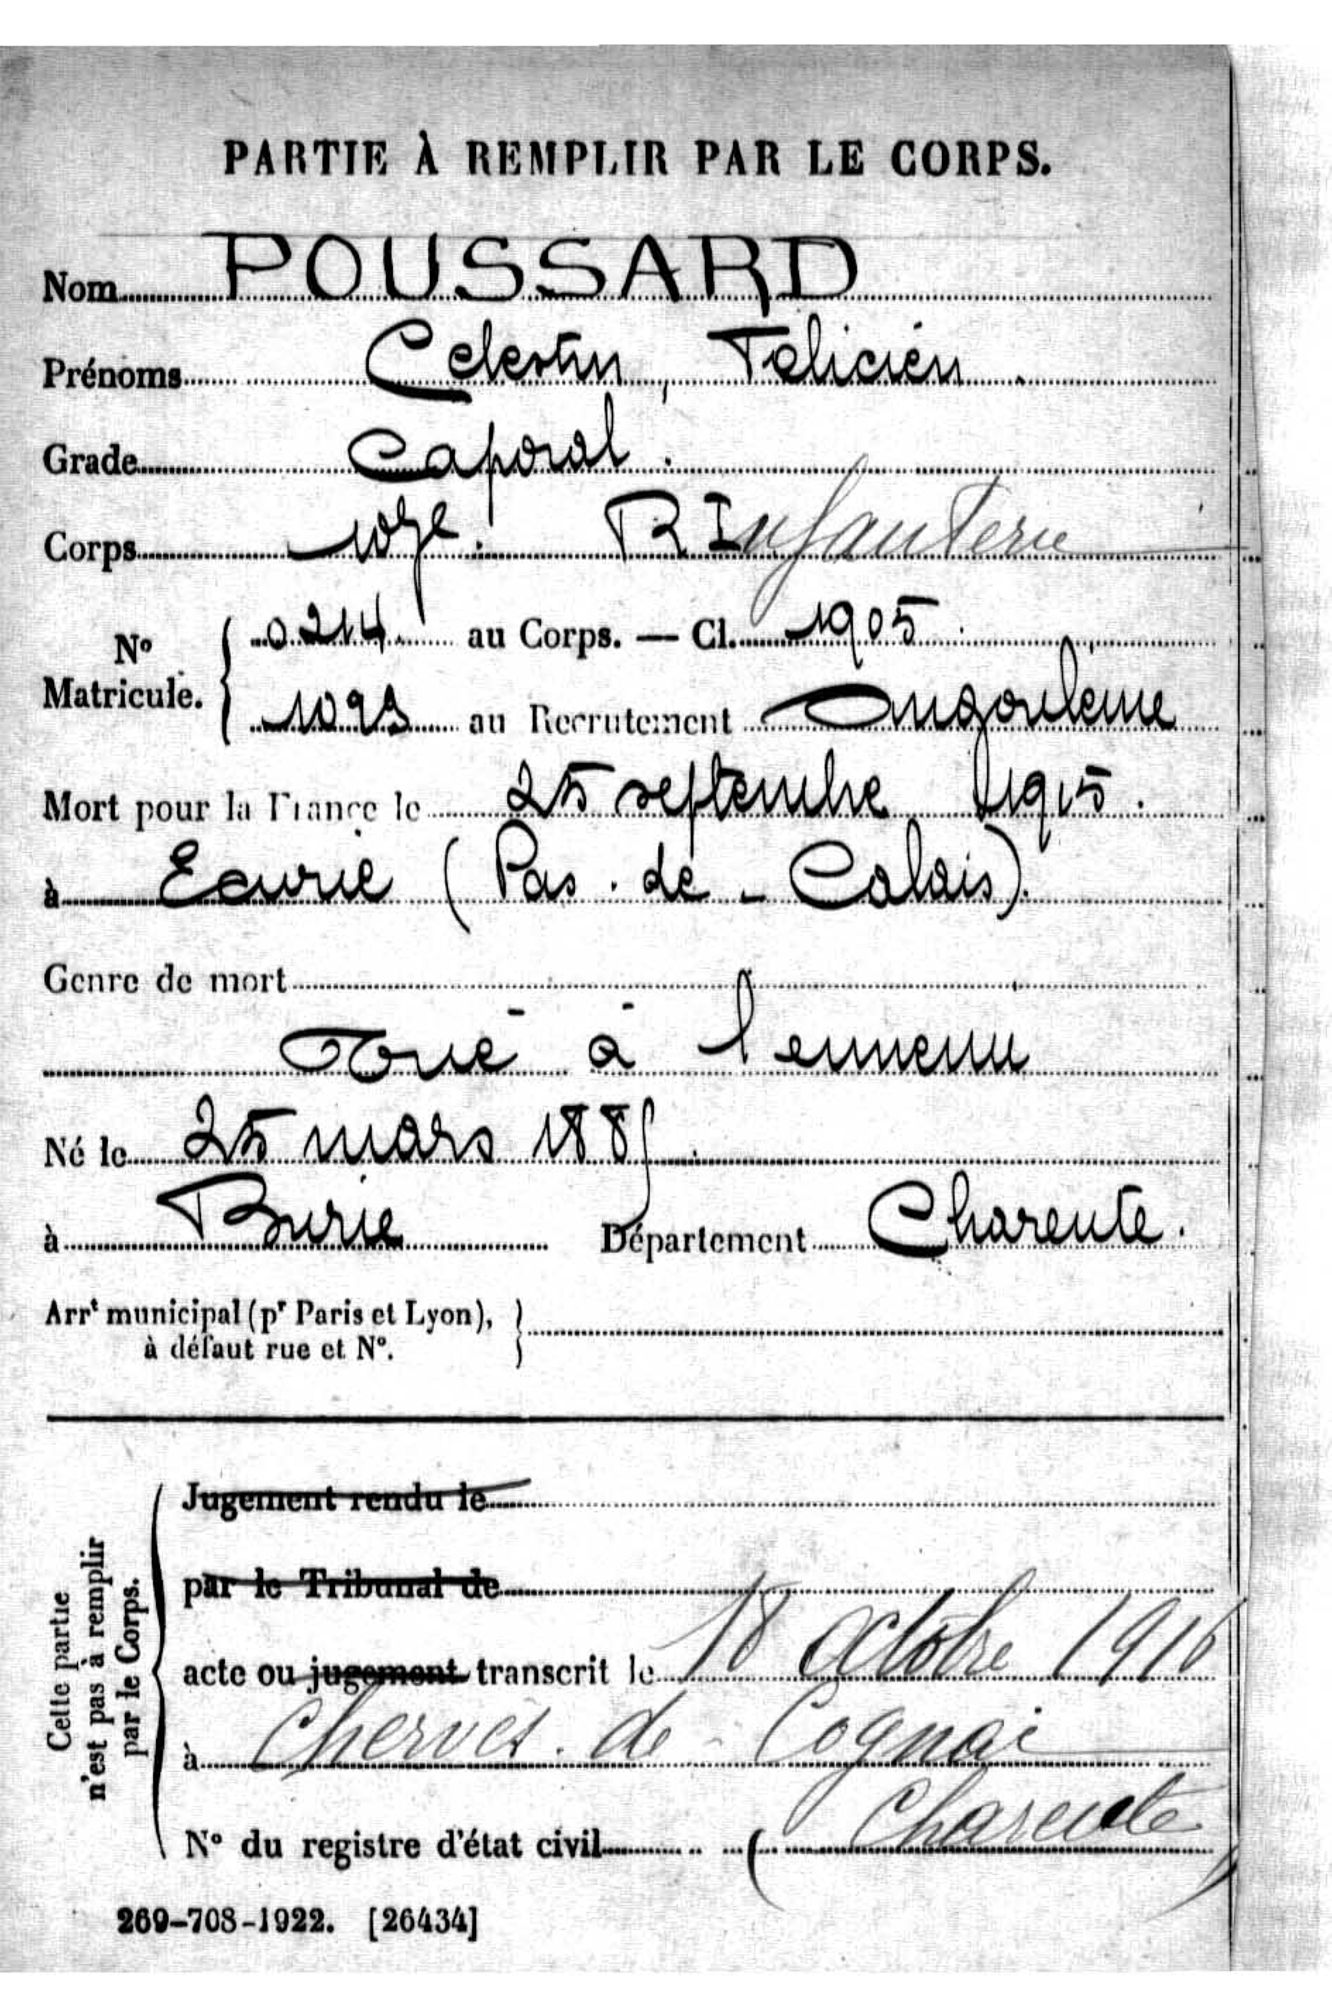 PARTIE À REMPLIR PAR LE CORPS.
Nom POUSSARD
Prénoms Celestin, Félicien
Grade Caporal.
Corps 107e. R Infanterie
No Matricule. 0214 au Corps. — Cl. 1905
1093 au Recrutement Angoulême
Mort pour la France le 25 septembre 1915.
à Ecurie (Pas-de-Calais).
Genre de mort
Tué à l'ennemi
Né le 25 mars 1885
à Burie Département Charente.
Arrt municipal (pr Paris et Lyon), à défaut rue et No.
Cette partie n'est pas à remplir par le Corps.
Jugement rendu le
par le Tribunal de
acte ou jugement transcrit le 18 Octobre 1916
à Cherves-de-Cognac
No du registre d'état civil (Charente)
269-708-1922. [26434]